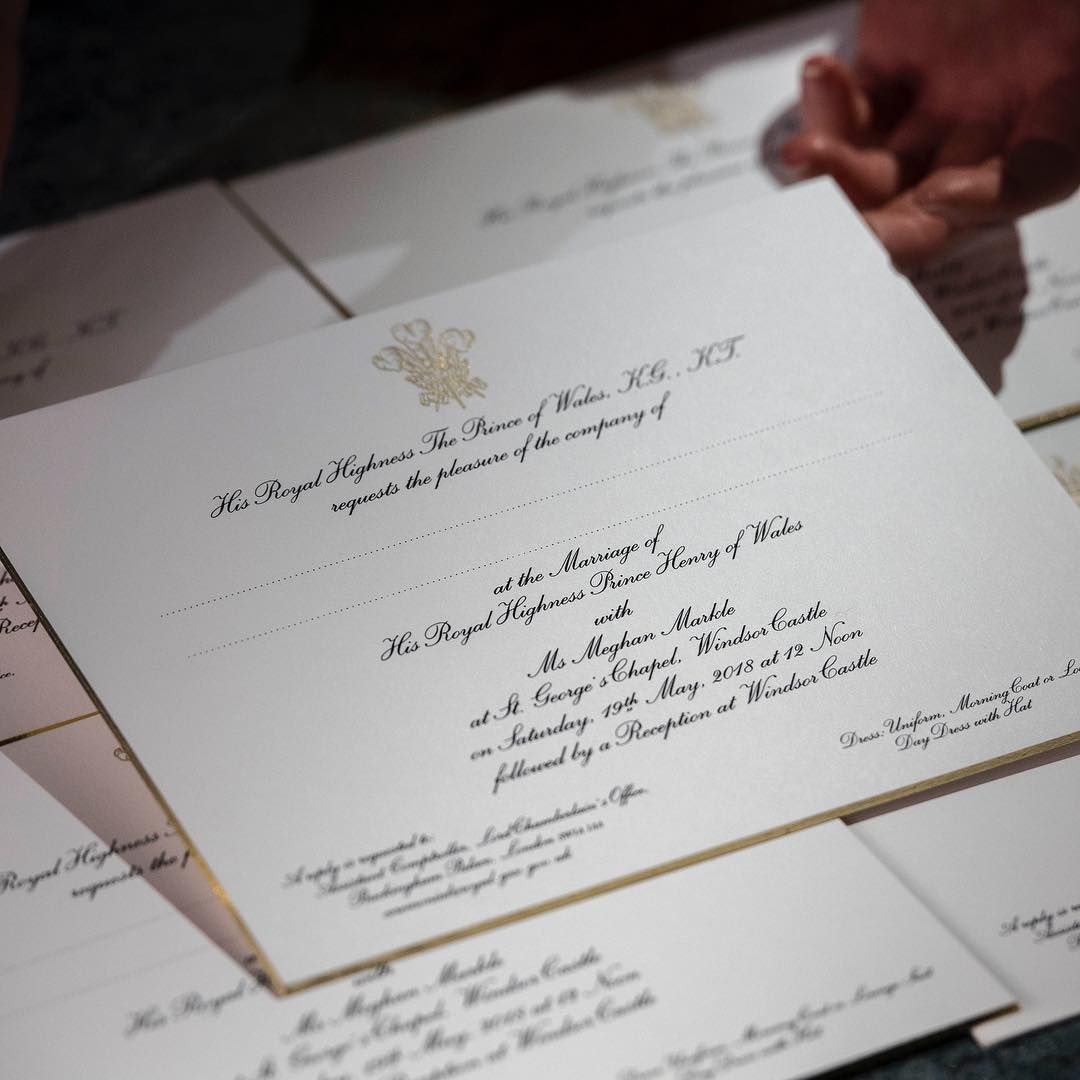 His Royal Highness The Prince of Wales, K.G., K.T.
requests the pleasure of the company of
at the Marriage of
His Royal Highness Prince Henry of Wales
with
Ms Meghan Markle
at St. George's Chapel, Windsor Castle
on Saturday, 19th May, 2018 at 12 Noon
followed by a Reception at Windsor Castle
Dress: Uniform, Morning Coat or
Day Dress with Hat
A reply is requested to:
Assistant Comptroller, Lord Chamberlain's Office,
Buckingham Palace, London
Royal Highness
requests the
His Royal
with
Ms Meghan Markle
George's Chapel, Windsor Castle
19th May, 2018 at 12 Noon
Reception at Windsor Castle
Dress: Uniform, Morning Coat or Lounge Suit
Day Dress with Hat
A reply is